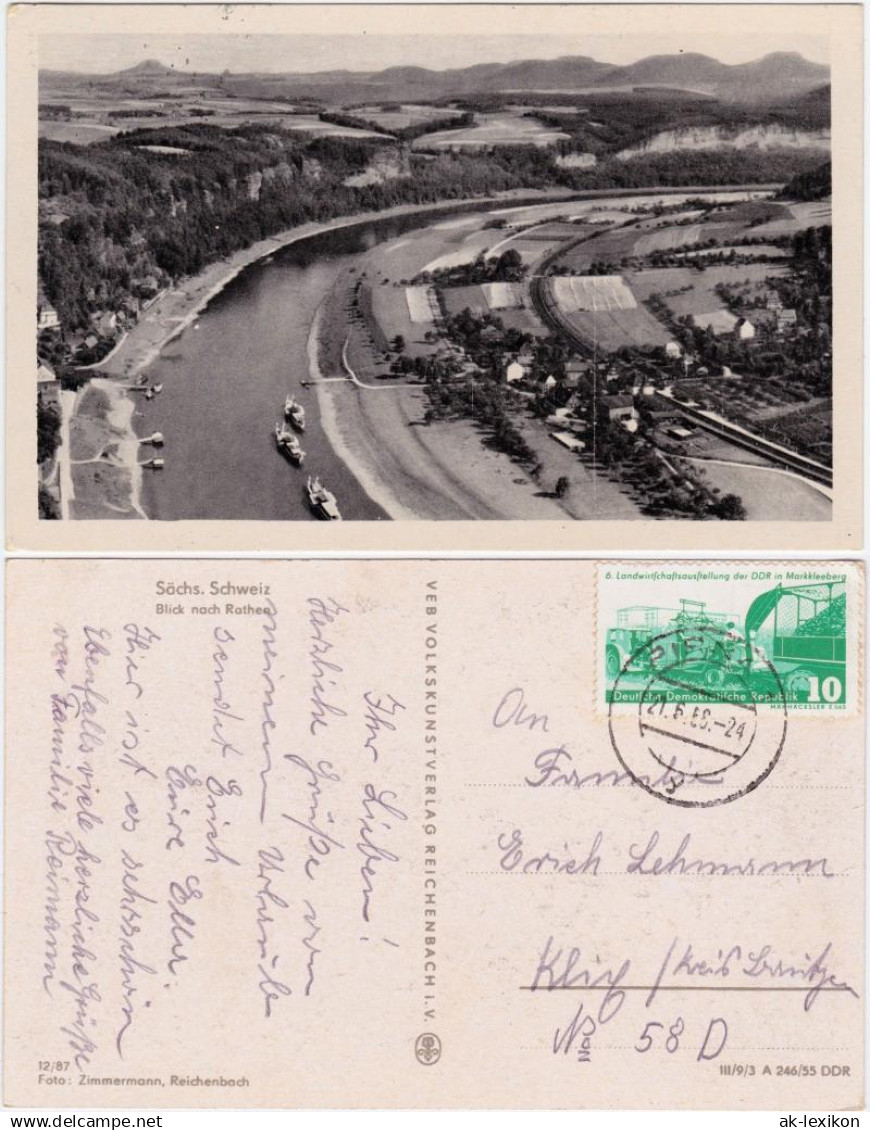 Sächs. Schweiz
Blick nach Rathen
Ihr Lieben!
Herzliche Grüße von
meinem Urlaub
sendet Erich
Eure Eller.
Hier ist es sehr schön
Ebenfalls viele herzliche Grüße
von Familie Reimann
12/87
Foto: Zimmermann, Reichenbach
VEB VOLKSKUNSTVERLAG REICHENBACH i. V.
6. Landwirtschaftsausstellung der DDR in Markkleeberg
Deutsche Demokratische Republik 10
MÄHHÄCKSLER E 065
21.6.58.-24
An
Familie
Erich Lehmann
Klix / Kreis Bautzen
Nr 58 D
III/9/3 A 246/55 DDR
ak-lexikon